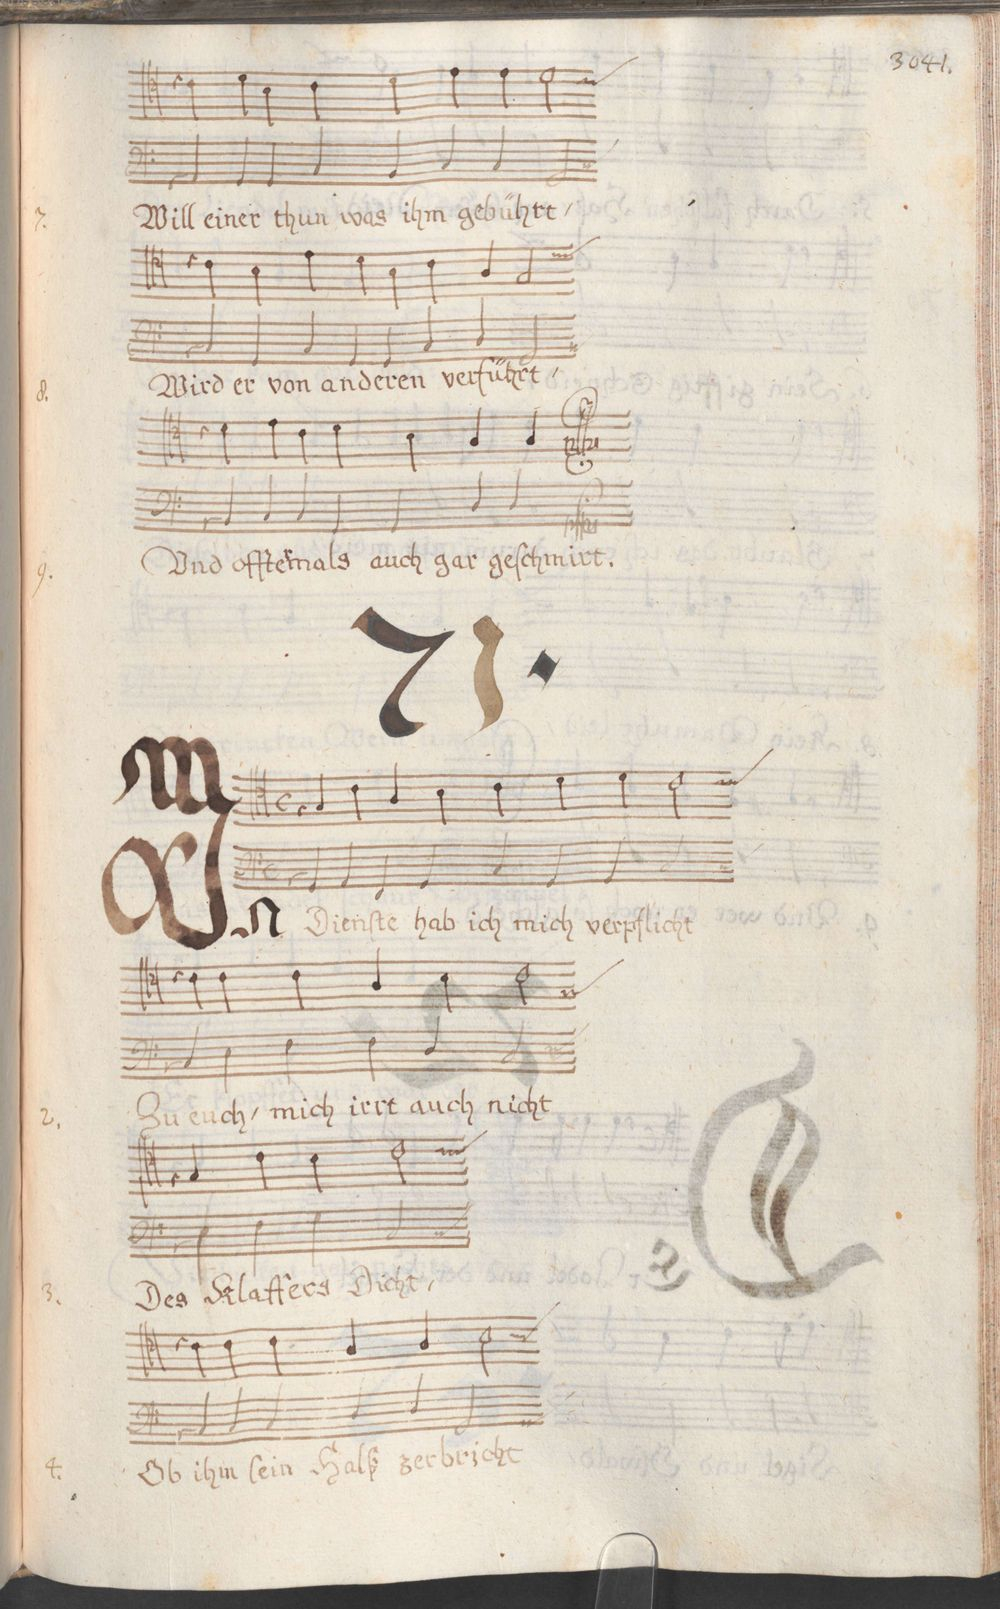 3041.
7. Will einer thun was ihm gebührt /
8. Wird er von anderen verführt /
9. Vnd offtermals auch gar geschmirt.
71.
M
IN Dienste hab ich mich verpflicht
2. Zu euch / mich irrt auch nicht
3. Des Klaffers Dicht /
4. Ob ihm sein Halß zerbricht